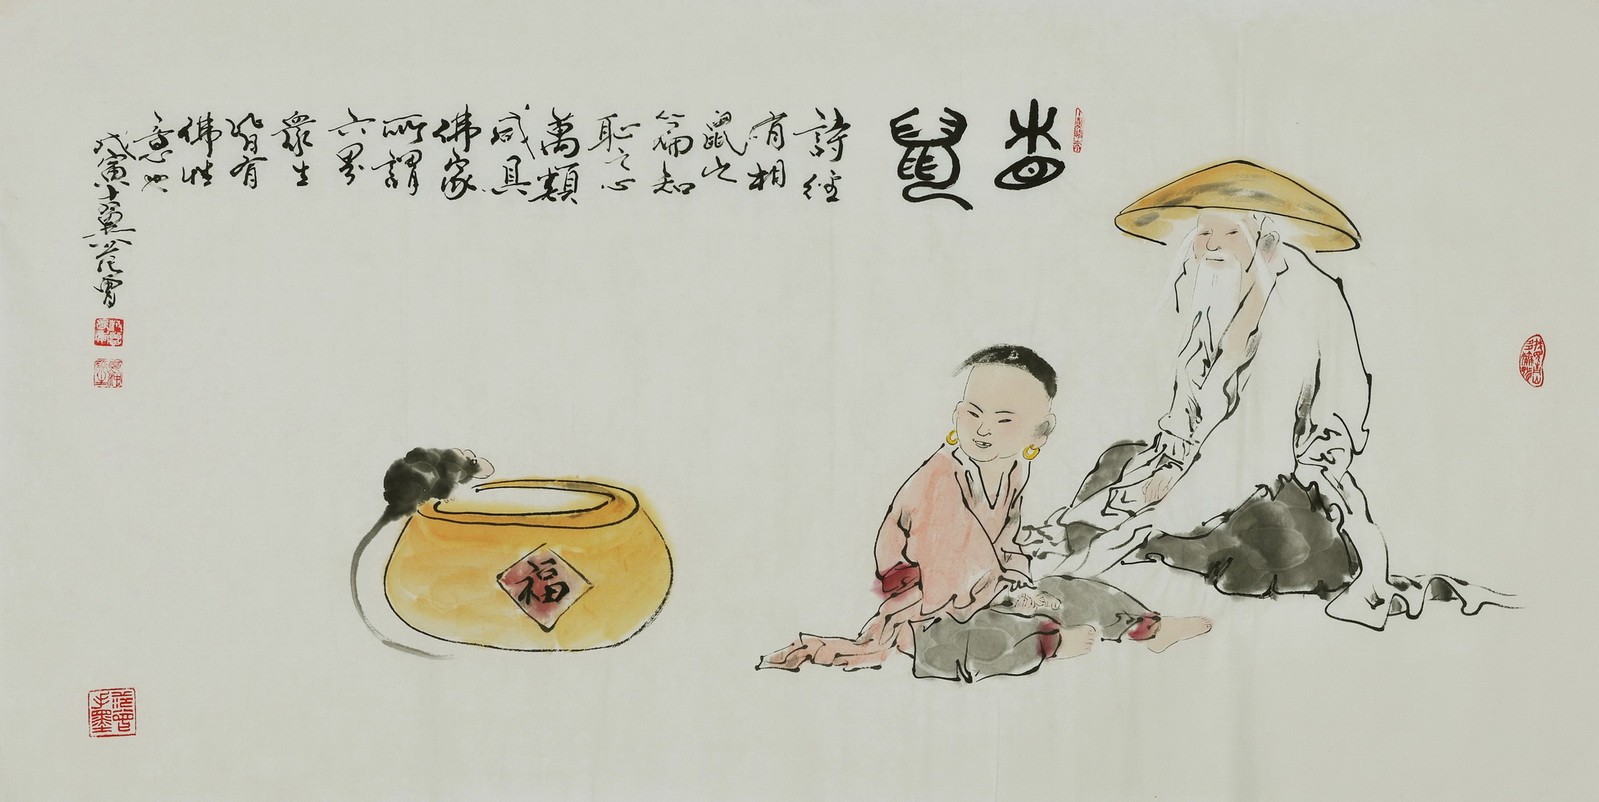 看
鼠
詩經
有相
鼠之
篇知
恥之心
萬類
咸具
佛家
所謂
六界
衆生
皆有
佛性
意也
戊寅十翼范曾
福